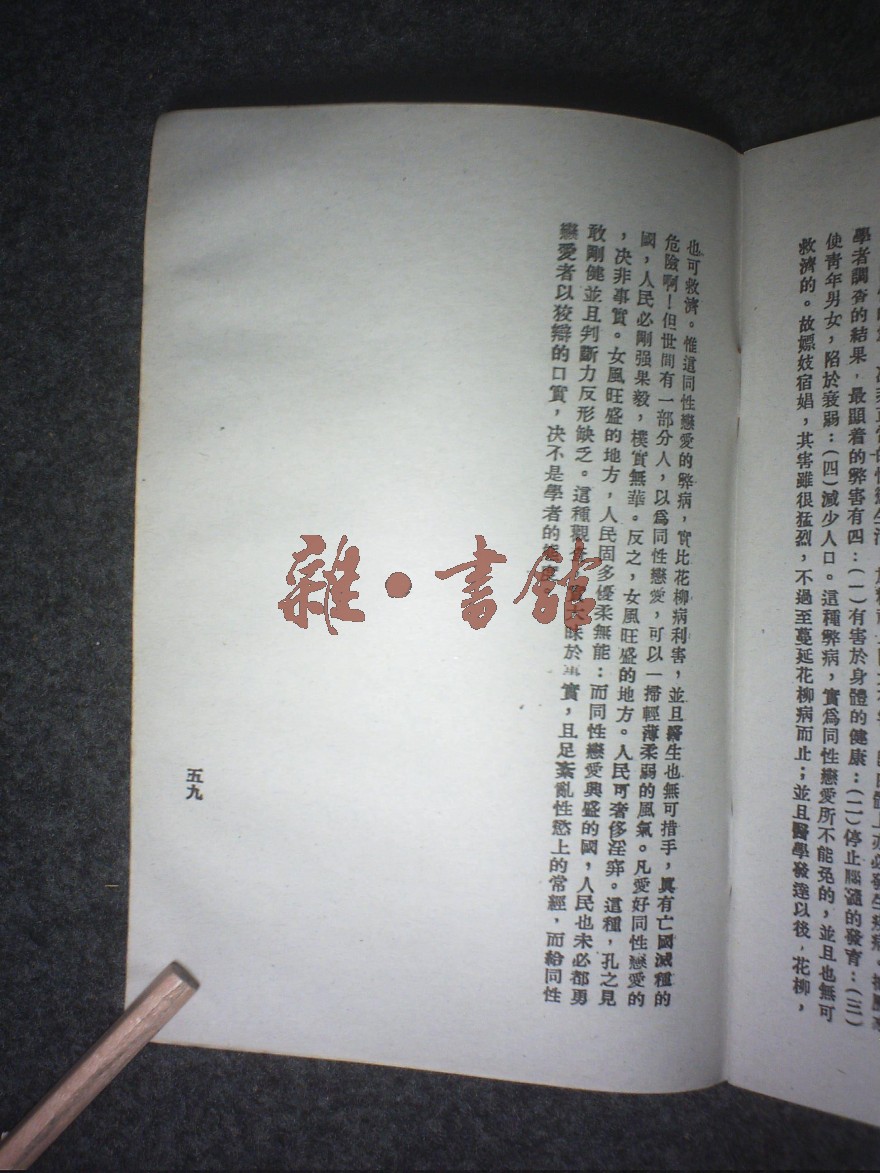 學者調查的結果，最顯着的弊害有四：(一)有害於身體的健康：(二)停止腦髓的發育：(三)
使青年男女，陷於衰弱：(四)減少人口。這種弊病，實爲同性戀愛所不能免的，並且也無可
救濟的。故嫖妓宿娼，其害雖很猛烈，不過至蔓延花柳病而止；並且醫學發達以後，花柳，
也可救濟。惟這同性戀愛的弊病，實比花柳病利害，並且醫生也無可措手，眞有亡國滅種的
危險啊！但世間有一部分人，以爲同性戀愛，可以一掃輕薄柔弱的風氣。凡愛好同性戀愛的
國，人民必剛强果毅，樸實無華。反之，女風旺盛的地方。人民可奢侈淫弈。這種，孔之見
，决非事實。女風旺盛的地方，人民固多優柔無能：而同性戀愛興盛的國，人民也未必都勇
敢剛健並且判斷力反形缺乏。這種觀
昧於
實，且足紊亂性慾上的常經，而給同性
戀愛者以狡辯的口實，决不是學者的
五九
雜·書館